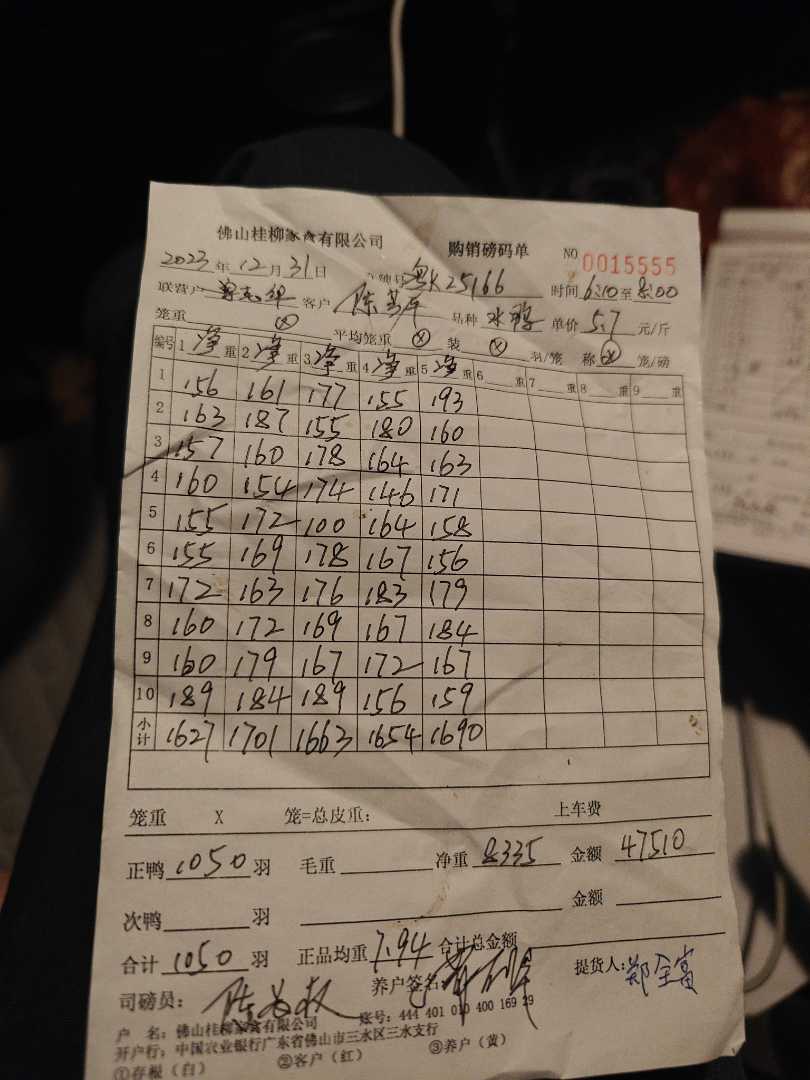 佛山桂柳家禽有限公司 购销磅码单 NO 0015555
2023年12月31日 粤K25166 时间6:10至8:00
联营户 客户 陈 品种 水鸭 单价 5.7 元/斤
笼重 ⊗ 平均笼重 ⊗ 装 ⊗ 羽/笼 称 ⊗ 笼/磅
编号 1 净重 2 净重 3 净重 4 净重 5 净重 6 重 7 重 8 重 9 重
1 156 161 177 155 193
2 163 187 155 180 160
3 157 160 178 164 163
4 160 154 174 146 171
5 155 172 100 164 158
6 155 169 178 167 156
7 172 163 176 183 179
8 160 172 169 167 184
9 160 179 167 172 167
10 189 184 189 156 159
小计 1627 1701 1663 1654 1690
笼重 X 笼=总皮重: 上车费
正鸭 1050 羽 毛重 净重 8335 金额 47510
次鸭 羽 金额
合计 1050 羽 正品均重 7.94 合计总金额
司磅员: 陈 养户签名: 提货人: 郑全富
户 名: 佛山桂柳家禽有限公司 账号: 444 401 010 400 169 29
开户行: 中国农业银行广东省佛山市三水区三水支行
①存根（白） ②客户（红） ③养户（黄）